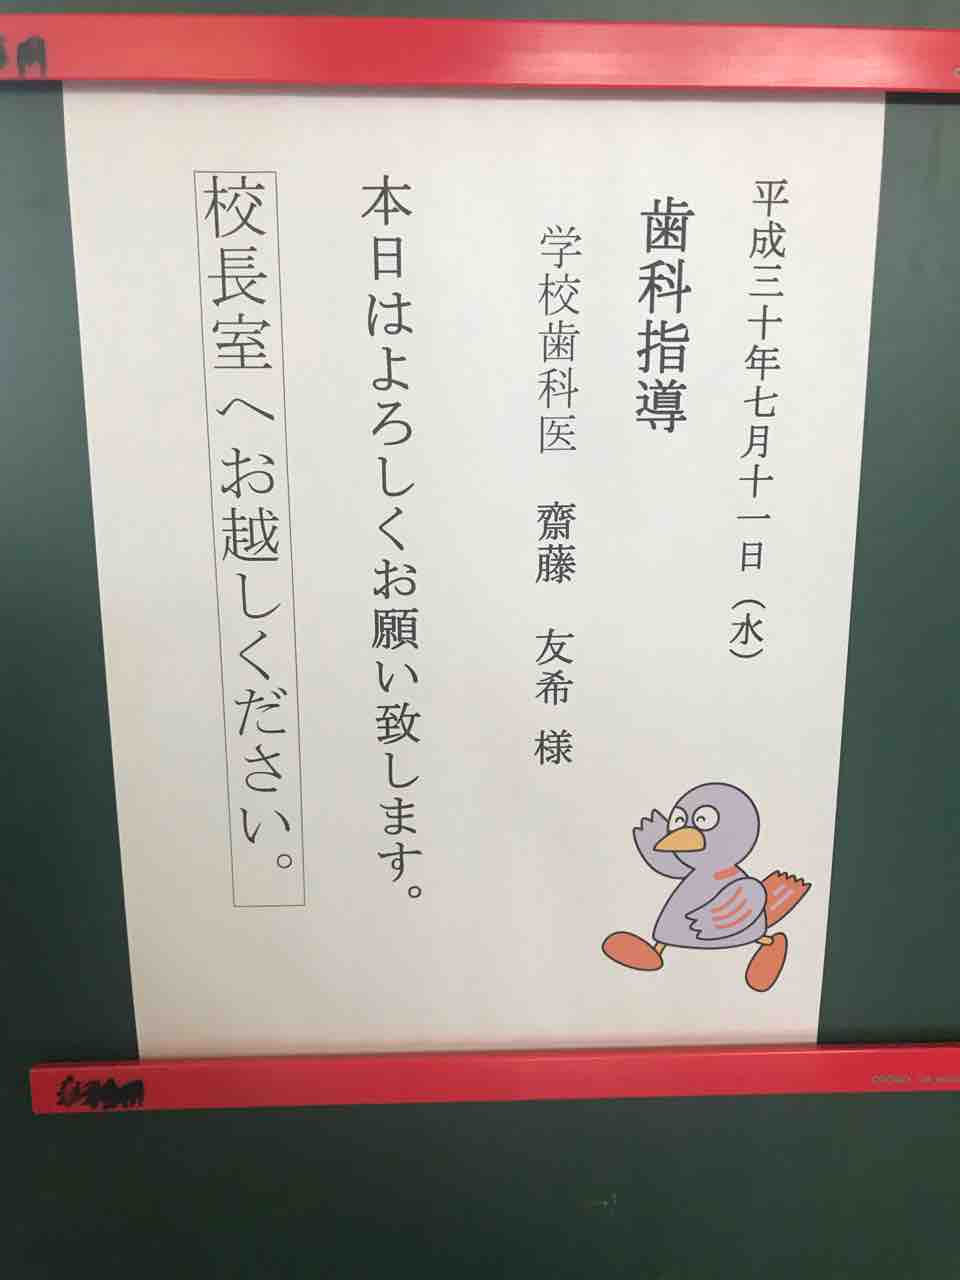 平成三十年七月十一日（水）
歯科指導
学校歯科医　齋藤　友希　様
本日はよろしくお願い致します。
校長室へお越しください。